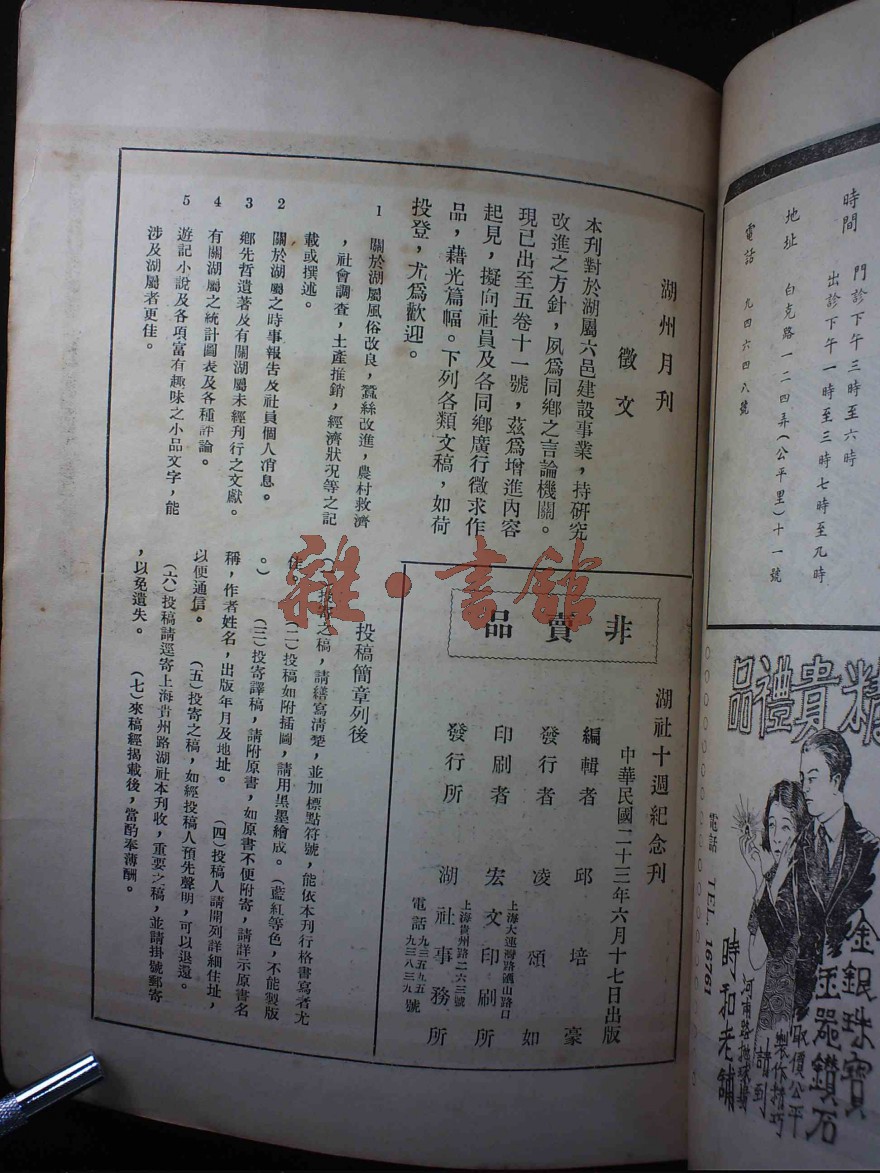 時間　門診下午三時至六時
出診下午一時至三時七時至九時
地址　白克路一二四弄(公平里)十一號
電話　九四六四八號
精貴禮品
金銀珠寶
玉器鑽石
取價公平
製作精巧
請到
河南路拋球場
時和老舖
電話　TEL. 16761
湖州月刊
徵文
本刊對於湖屬六邑建設事業，持研究
改進之方針，夙爲同鄉之言論機關。
現已出至五卷十一號，茲爲增進內容
起見，擬向社員及各同鄉廣行徵求作
品，藉光篇幅。下列各類文稿，如荷
投登，尤爲歡迎。
1　關於湖屬風俗改良，蠶絲改進，農村救濟
，社會調查，土產推銷，經濟狀況等之記
載或撰述。
2　關於湖屬之時事報告及社員個人消息。
3　鄉先哲遺著及有關湖屬未經刊行之文獻。
4　有關湖屬之統計圖表及各種評論。
5　遊記小說及各項富有趣味之小品文字，能
涉及湖屬者更佳。
投稿簡章列後
(一)投寄之稿，請繕寫清楚，並加標點符號，能依本刊行格書寫者尤
佳。　(二)投稿如附插圖，請用黑墨繪成。(藍紅等色，不能製版
。)　(三)投寄譯稿，請附原書，如原書不便附寄，請詳示原書名
稱，作者姓名，出版年月及地址。　(四)投稿人請開列詳細住址，
以便通信。　(五)投寄之稿，如經投稿人預先聲明，可以退還。
(六)投稿請逕寄上海貴州路湖社本刊收，重要之稿，並請掛號郵寄
，以免遺失。　(七)來稿經揭載後，當酌奉薄酬。
非賣品
湖社十週紀念刊
中華民國二十三年六月十七日出版
編輯者　邱培豪
發行者　凌頌如
印刷者　宏文印刷所
上海大連灣路餉山路口
發行所　湖社事務所
上海貴州路二六三號
電話九三五九五
九三八三九號
雜·書館